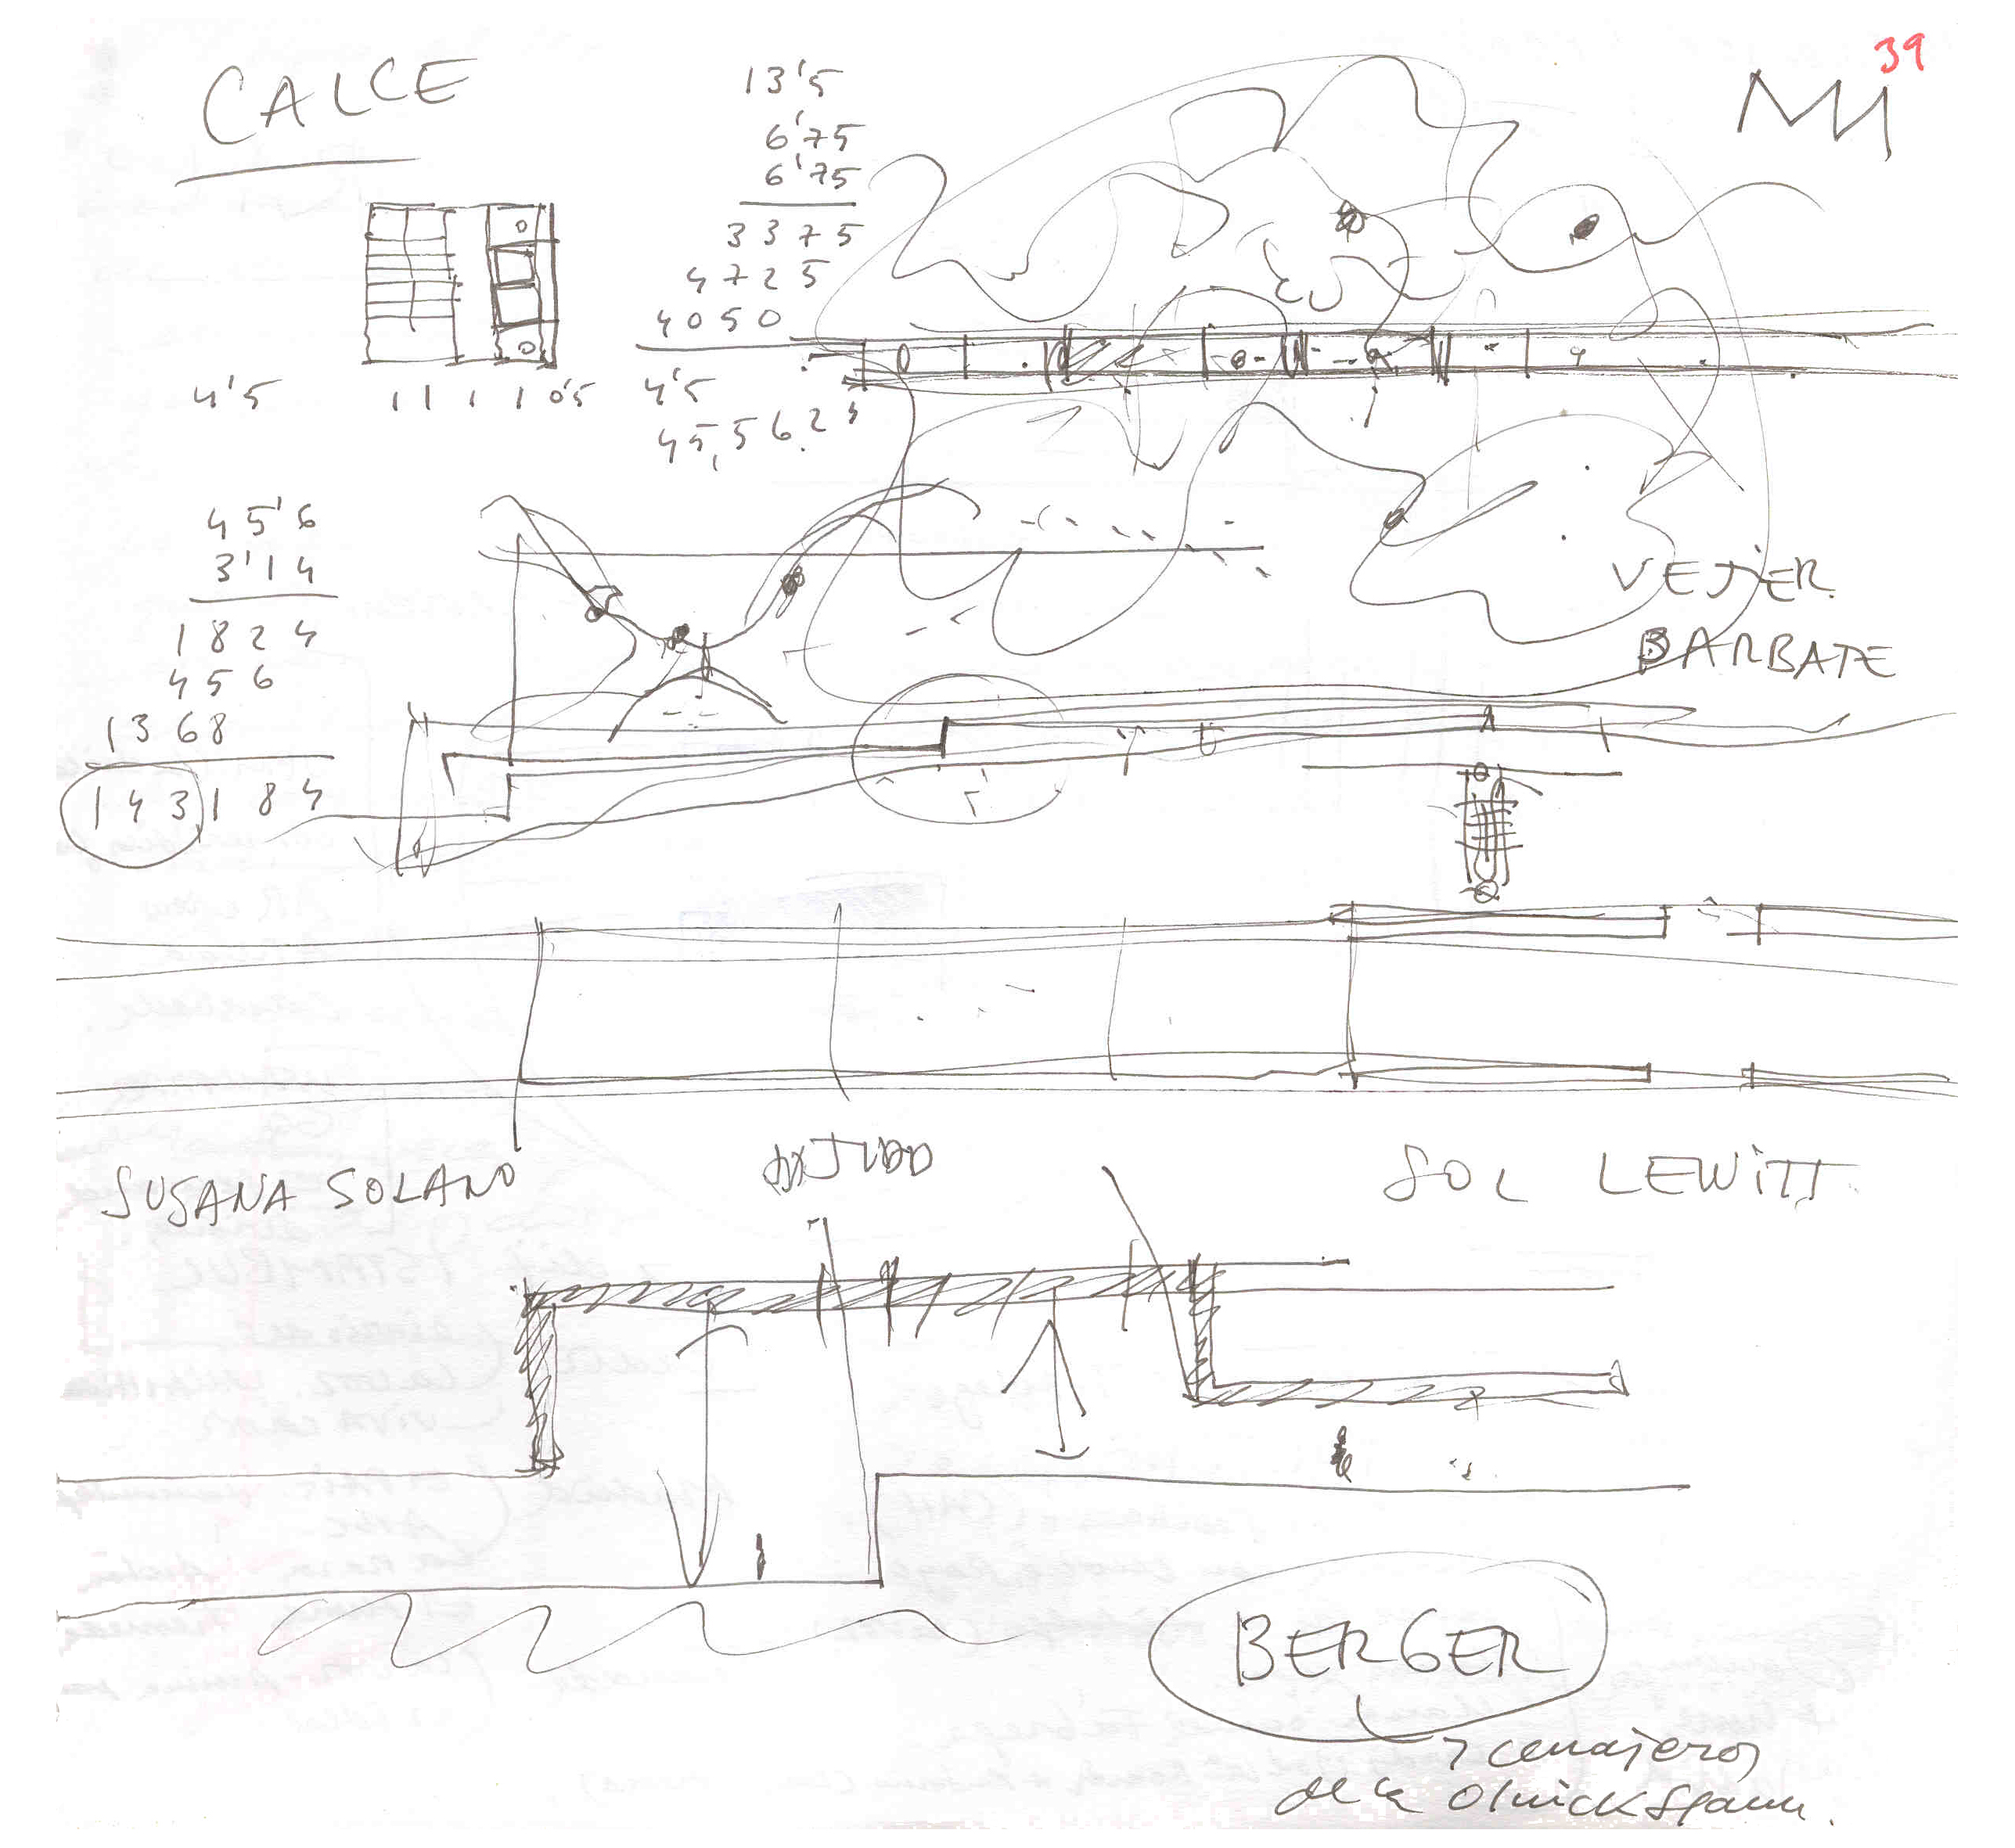 39
CALCE
13'5
6'75
6'75
3375
4725
4050
4'5
45,562
4'5
1 1 1 1 0'5
45'6
3'14
1824
456
1368
143184
VEJER
BARBATE
SUSANA SOLANO
SOL LEWITT
BERGER
y cerrajeros
de la Olnick Spanu.